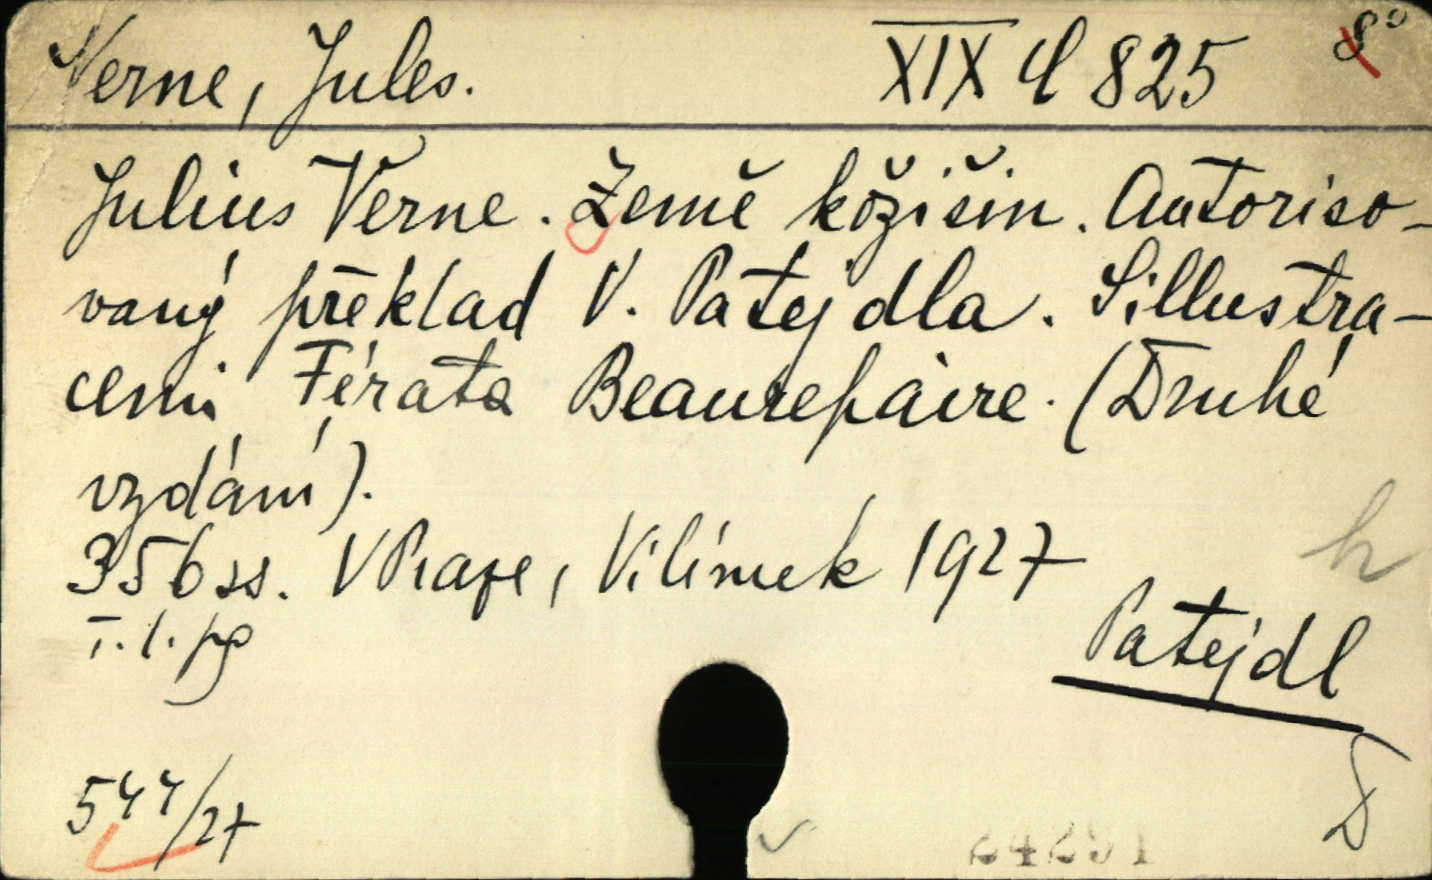 Verne, Jules. XIX C 825 8°
Julius Verne. Země kožišin. Autoriso-
vaný překlad V. Patejdla. S illustra-
cemi Férata a Beaurepaire. (Druhé
vydání).
356 ss. V Praze, Vilímek 1927
Patejdl
544/27
24291